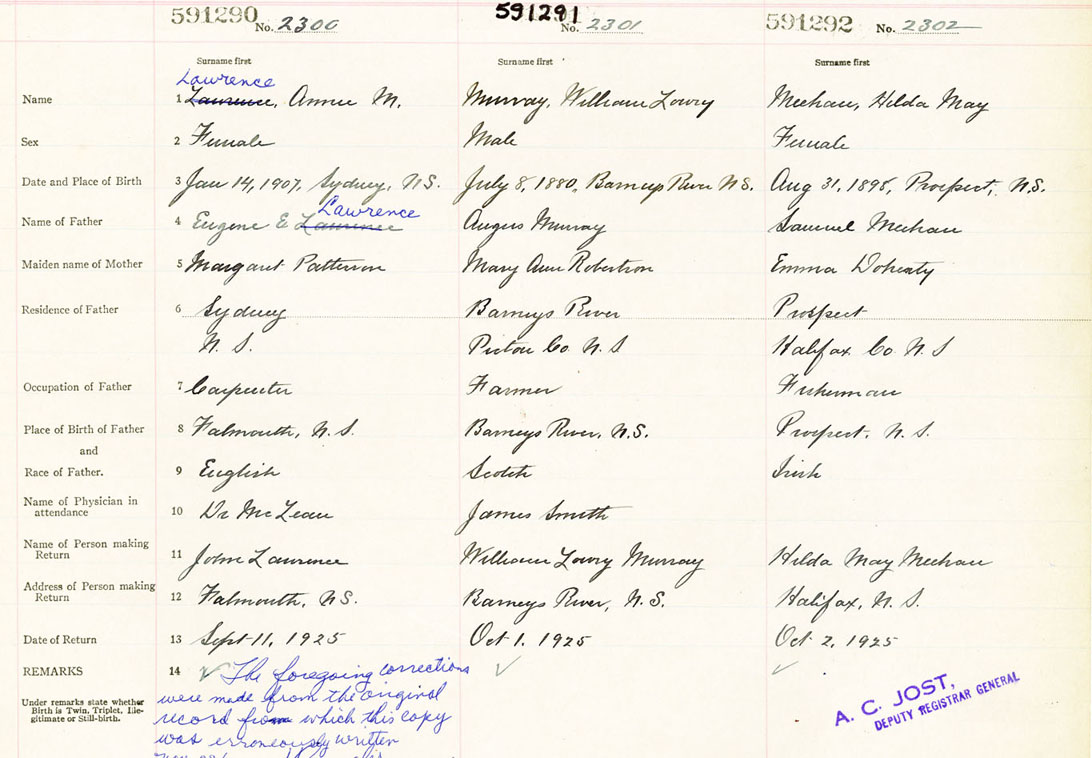 591290 No. 2300 591291 No. 2301 591292 No. 2302
Surname first Surname first Surname first
Lawrence
Name 1 Lawrence, Annie M. Murray, William Lowry Meehan, Hilda May
Sex 2 Female Male Female
Date and Place of Birth 3 Jan 14, 1907, Sydney, N.S. July 8, 1880, Barneys River N.S. Aug 31, 1898, Prospect, N.S.
Lawrence
Name of Father 4 Eugene E Angus Murray Samuel Meehan
Maiden name of Mother 5 Margaret Patterson Mary Ann Robertson Emma Doherty
Residence of Father 6 Sydney Barneys River Prospect
N. S. Pictou Co N. S Halifax Co N. S
Occupation of Father 7 Carpenter Farmer Fisherman
Place of Birth of Father 8 Falmouth, N. S. Barneys River, N.S. Prospect, N. S.
and
Race of Father. 9 English Scotch Irish
Name of Physician in
attendance 10 Dr McLean James Smith
Name of Person making
Return 11 John Lawrence William Lowry Murray Hilda May Meehan
Address of Person making
Return 12 Falmouth, N.S. Barneys River, N.S. Halifax, N. S.
Date of Return 13 Sept 11, 1925 Oct 1. 1925 Oct 2, 1925
REMARKS 14 The foregoing corrections
were made from the original
Under remarks state whether
Birth is Twin, Triplet, Ille-
gitimate or Still-birth.
record from which this copy
was erroneously written
A. C. JOST,
DEPUTY REGISTRAR GENERAL